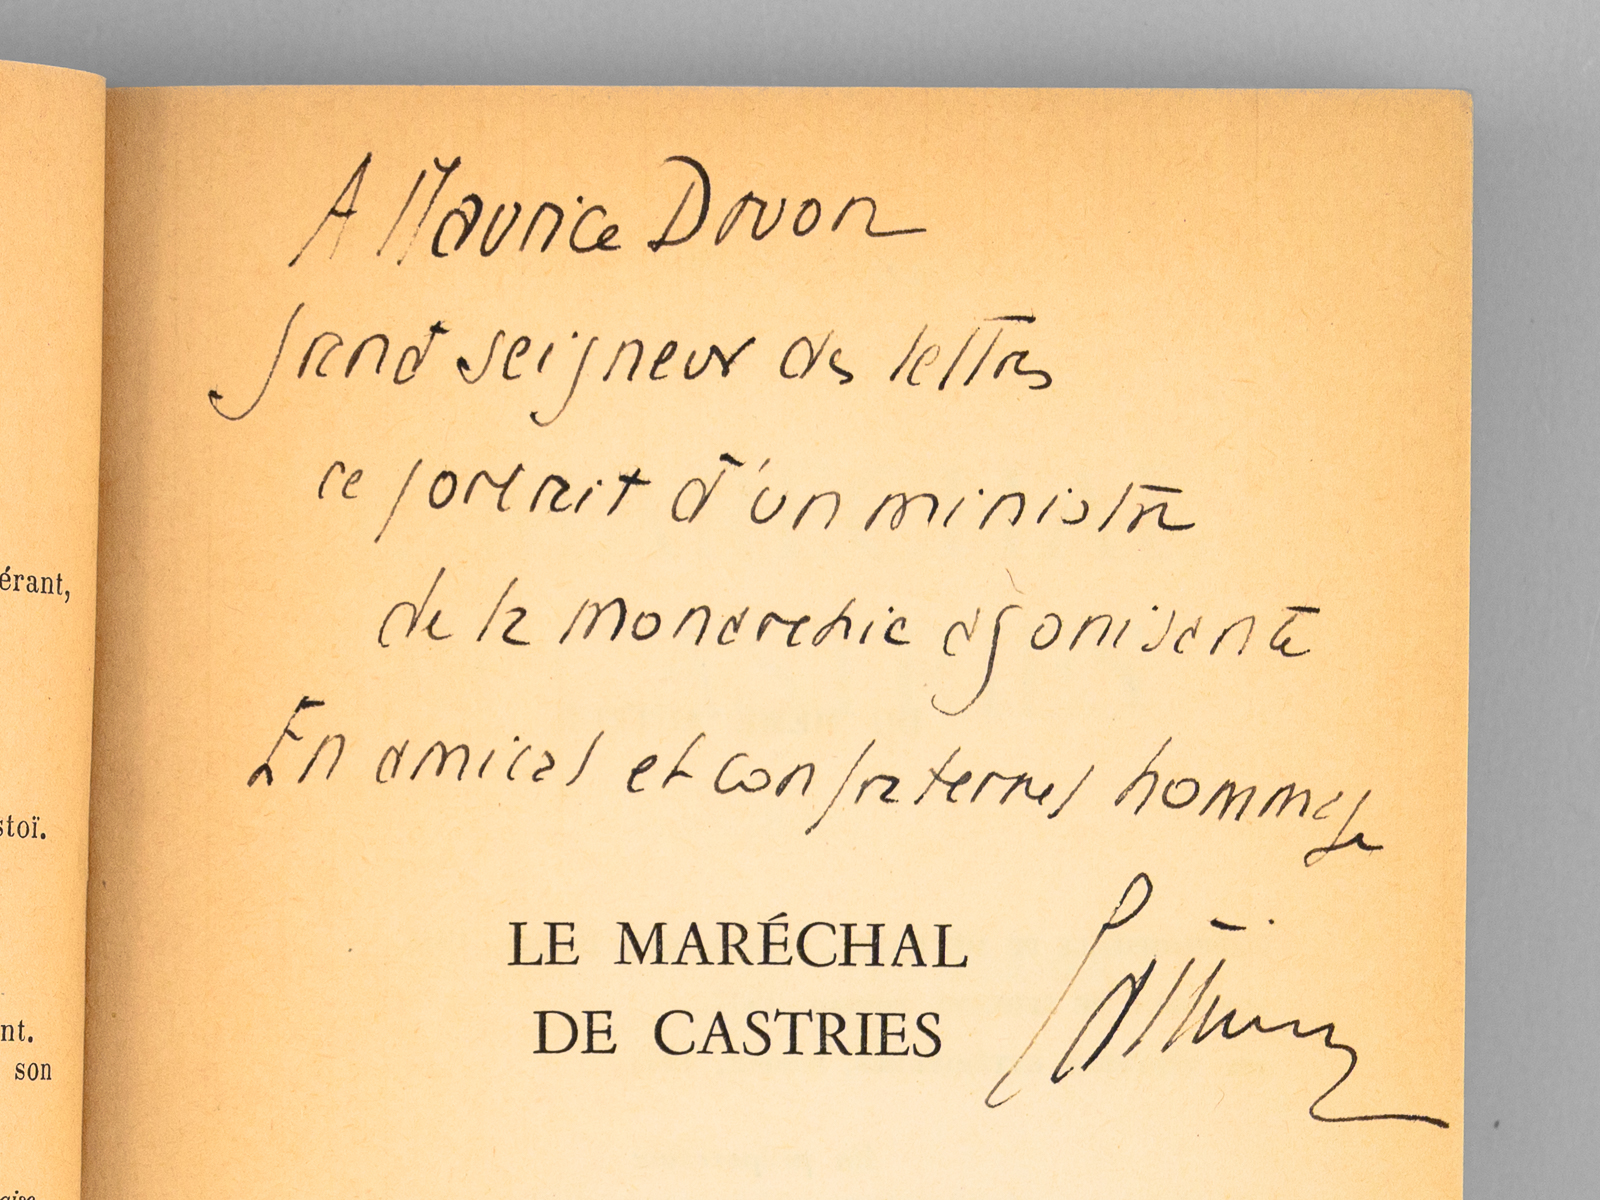 A Maurice Druon
grand seigneur des lettres
ce portrait d'un ministre
de la monarchie agonisante
En amical et confraternel hommage
LE MARÉCHAL
DE CASTRIES
érant,
stoï.
nt.
son